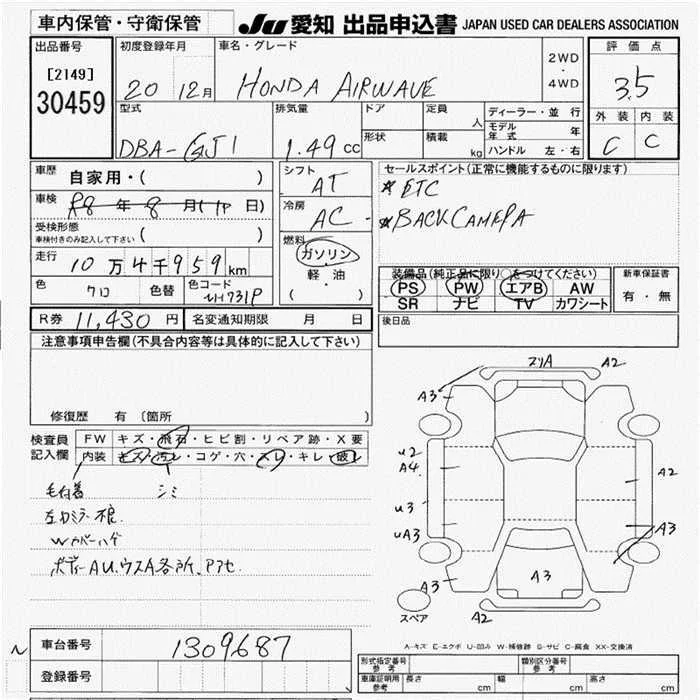 車内保管・守衛保管
JU 愛知 出品申込書 JAPAN USED CAR DEALERS ASSOCIATION
出品番号
[2149]
30459
初度登録年月
20 12月
車名・グレード
HONDA AIRWAVE
2WD
・
4WD
評価点
3.5
外装 内装
C C
型式
DBA-GJ1
排気量
1.49 cc
ドア
形状
定員
人
積載
kg
ディーラー・並行
モデル年式 年
ハンドル 左・右
車歴
自家用・( )
車検
R8 年 8 月( 日)
受検形態
車検付きのみ記入して下さい ( )
走行
10万4千959km
色
クロ
色替
色コード
NH731P
シフト
AT
冷房
AC
燃料
ガソリン
軽・油
( )
セールスポイント(正常に機能するものに限ります)
ETC
BACK CAMERA
装備品(純正品に限り○をつけてください)
PS PW エアB AW
SR ナビ TV カワシート
新車保証書
有・無
R券 11,430 円
名変通知期限 月 日
後日品
注意事項申告欄(不具合内容等は具体的に記入して下さい)
修復歴 有 (箇所
検査員記入欄
FW キズ・飛石・ヒビ割・リペア跡・X要
内装 キズ・汚レ・コゲ・穴・スレ・キレ・破レ
毛付着 シミ
Wカバーハゲ
ボディーAU.ウスA各所.
A2
A3
U2
A4
A2
U3
UA3
A3
A3
A3
A2
スペア
A-キズ E-エクボ U-凹み W-補修跡 S-サビ C-腐食 XX-交換済
車台番号
1309687
登録番号
型式指定番号
参考
類別区分番号
参考
車庫証明用
参考
長さ cm
幅 cm
高さ cm